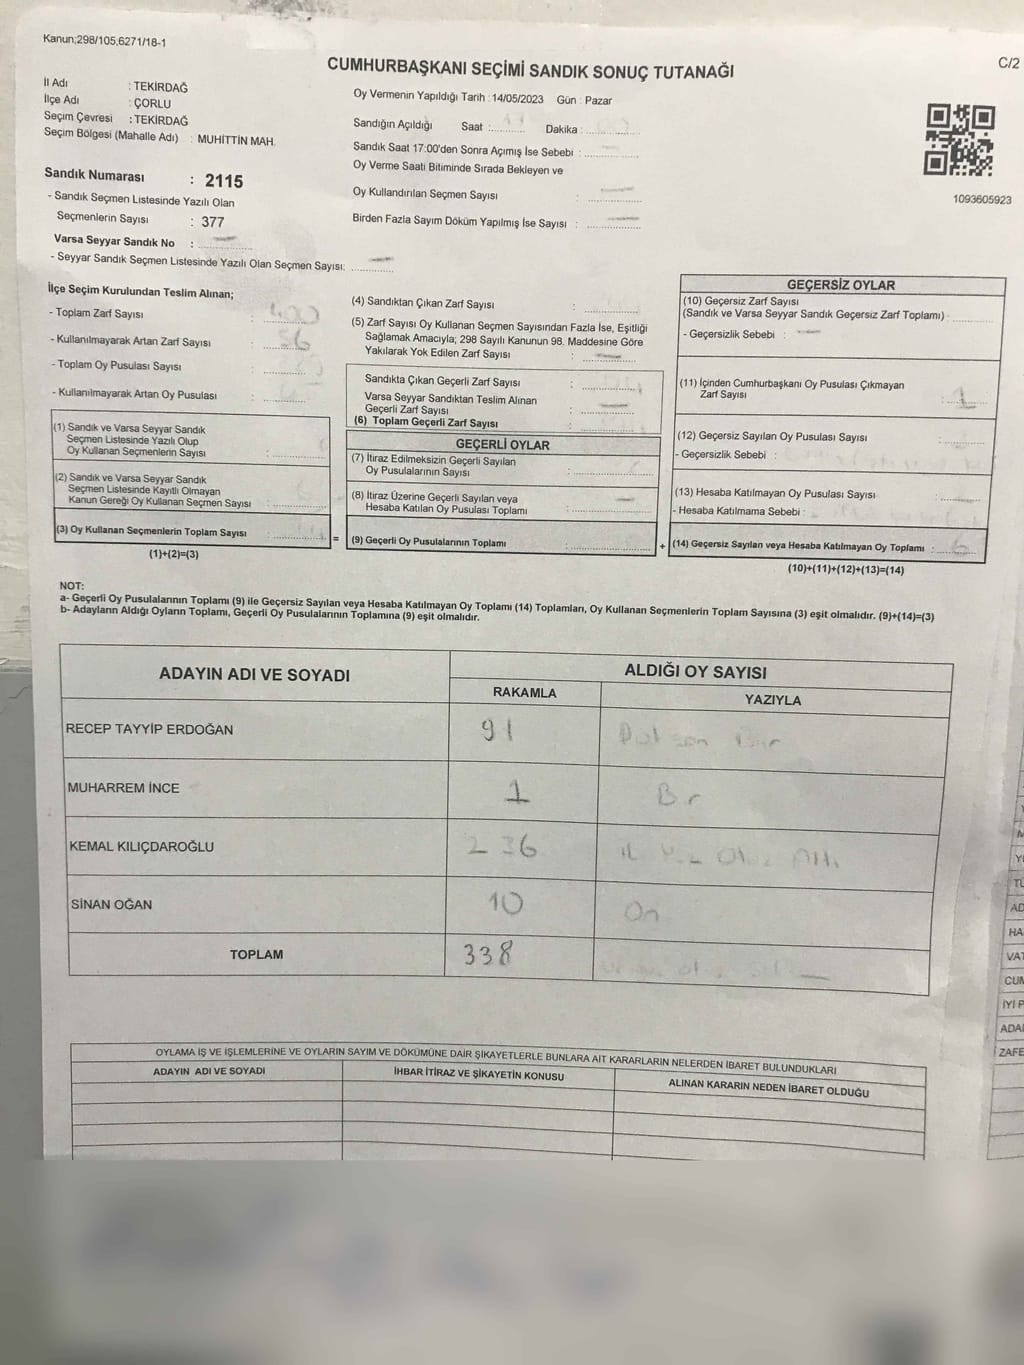 Kanun;298/105,6271/18-1
C/2
CUMHURBAŞKANI SEÇİMİ SANDIK SONUÇ TUTANAĞI
İl Adı : TEKİRDAĞ
İlçe Adı : ÇORLU
Seçim Çevresi : TEKİRDAĞ
Seçim Bölgesi (Mahalle Adı) : MUHİTTİN MAH.
Sandık Numarası : 2115
- Sandık Seçmen Listesinde Yazılı Olan
Seçmenlerin Sayısı : 377
Varsa Seyyar Sandık No :
- Seyyar Sandık Seçmen Listesinde Yazılı Olan Seçmen Sayısı:
Oy Vermenin Yapıldığı Tarih : 14/05/2023 Gün : Pazar
Sandığın Açıldığı Saat : Dakika :
Sandık Saat 17:00'den Sonra Açımış İse Sebebi :
Oy Verme Saati Bitiminde Sırada Bekleyen ve
Oy Kullandırılan Seçmen Sayısı :
Birden Fazla Sayım Döküm Yapılmış İse Sayısı :
1093605923
İlçe Seçim Kurulundan Teslim Alınan;
- Toplam Zarf Sayısı : 400
- Kullanılmayarak Artan Zarf Sayısı : 56
- Toplam Oy Pusulası Sayısı :
- Kullanılmayarak Artan Oy Pusulası :
(1) Sandık ve Varsa Seyyar Sandık
Seçmen Listesinde Yazılı Olup
Oy Kullanan Seçmenlerin Sayısı :
(2) Sandık ve Varsa Seyyar Sandık
Seçmen Listesinde Kayıtlı Olmayan
Kanun Gereği Oy Kullanan Seçmen Sayısı :
(3) Oy Kullanan Seçmenlerin Toplam Sayısı :
(1)+(2)=(3)
(4) Sandıktan Çıkan Zarf Sayısı :
(5) Zarf Sayısı Oy Kullanan Seçmen Sayısından Fazla İse, Eşitliği
Sağlamak Amacıyla; 298 Sayılı Kanunun 98. Maddesine Göre
Yakılarak Yok Edilen Zarf Sayısı :
Sandıkta Çıkan Geçerli Zarf Sayısı :
Varsa Seyyar Sandıktan Teslim Alınan
Geçerli Zarf Sayısı :
(6) Toplam Geçerli Zarf Sayısı :
GEÇERLİ OYLAR
(7) İtiraz Edilmeksizin Geçerli Sayılan
Oy Pusulalarının Sayısı :
(8) İtiraz Üzerine Geçerli Sayılan veya
Hesaba Katılan Oy Pusulası Toplamı :
= (9) Geçerli Oy Pusulalarının Toplamı :
GEÇERSİZ OYLAR
(10) Geçersiz Zarf Sayısı
(Sandık ve Varsa Seyyar Sandık Geçersiz Zarf Toplamı) :
- Geçersizlik Sebebi :
(11) İçinden Cumhurbaşkanı Oy Pusulası Çıkmayan
Zarf Sayısı : 1
(12) Geçersiz Sayılan Oy Pusulası Sayısı :
- Geçersizlik Sebebi :
(13) Hesaba Katılmayan Oy Pusulası Sayısı :
- Hesaba Katılmama Sebebi :
+ (14) Geçersiz Sayılan veya Hesaba Katılmayan Oy Toplamı : 6
(10)+(11)+(12)+(13)=(14)
NOT:
a- Geçerli Oy Pusulalarının Toplamı (9) ile Geçersiz Sayılan veya Hesaba Katılmayan Oy Toplamı (14) Toplamları, Oy Kullanan Seçmenlerin Toplam Sayısına (3) eşit olmalıdır. (9)+(14)=(3)
b- Adayların Aldığı Oyların Toplamı, Geçerli Oy Pusulalarının Toplamına (9) eşit olmalıdır.
ADAYIN ADI VE SOYADI
ALDIĞI OY SAYISI
RAKAMLA YAZIYLA
RECEP TAYYİP ERDOĞAN 91
MUHARREM İNCE 1 Bir
KEMAL KILIÇDAROĞLU 236 Yüz Otuz Altı
SİNAN OĞAN 10 On
TOPLAM 338
OYLAMA İŞ VE İŞLEMLERİNE VE OYLARIN SAYIM VE DÖKÜMÜNE DAİR ŞİKAYETLERLE BUNLARA AİT KARARLARIN NELERDEN İBARET BULUNDUKLARI
ADAYIN ADI VE SOYADI
İHBAR İTİRAZ VE ŞİKAYETİN KONUSU
ALINAN KARARIN NEDEN İBARET OLDUĞU
AD
HA
VAT
CUM
İYİ P
ADA
ZAFE